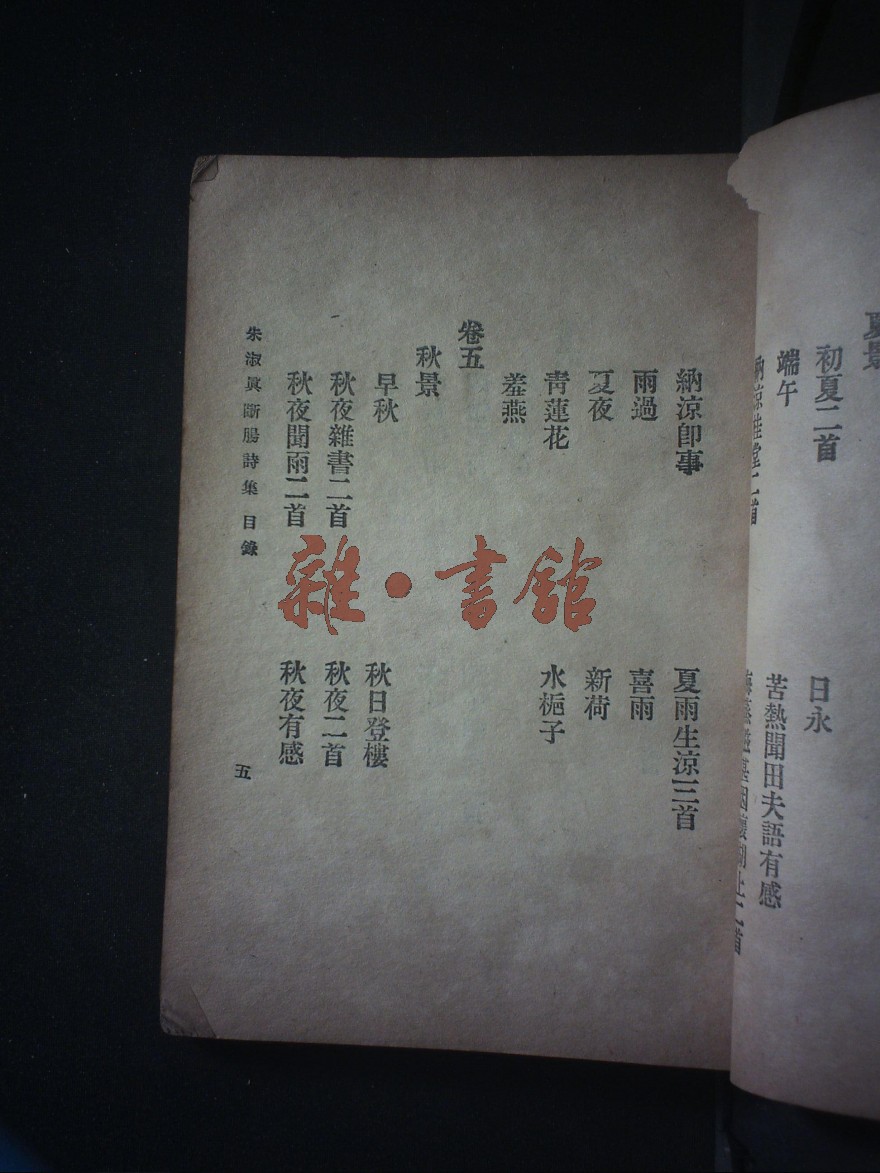 夏景
初夏二首
日永
端午
苦熱聞田夫語有感
納涼桂堂二首
納涼卽事
夏雨生涼三首
雨過
喜雨
夏夜
新荷
青蓮花
水梔子
羞燕
卷五
秋景
早秋
秋日登樓
秋夜雜書二首
秋夜二首
秋夜聞雨二首
秋夜有感
朱淑眞斷腸詩集 目錄
五
雜·書館